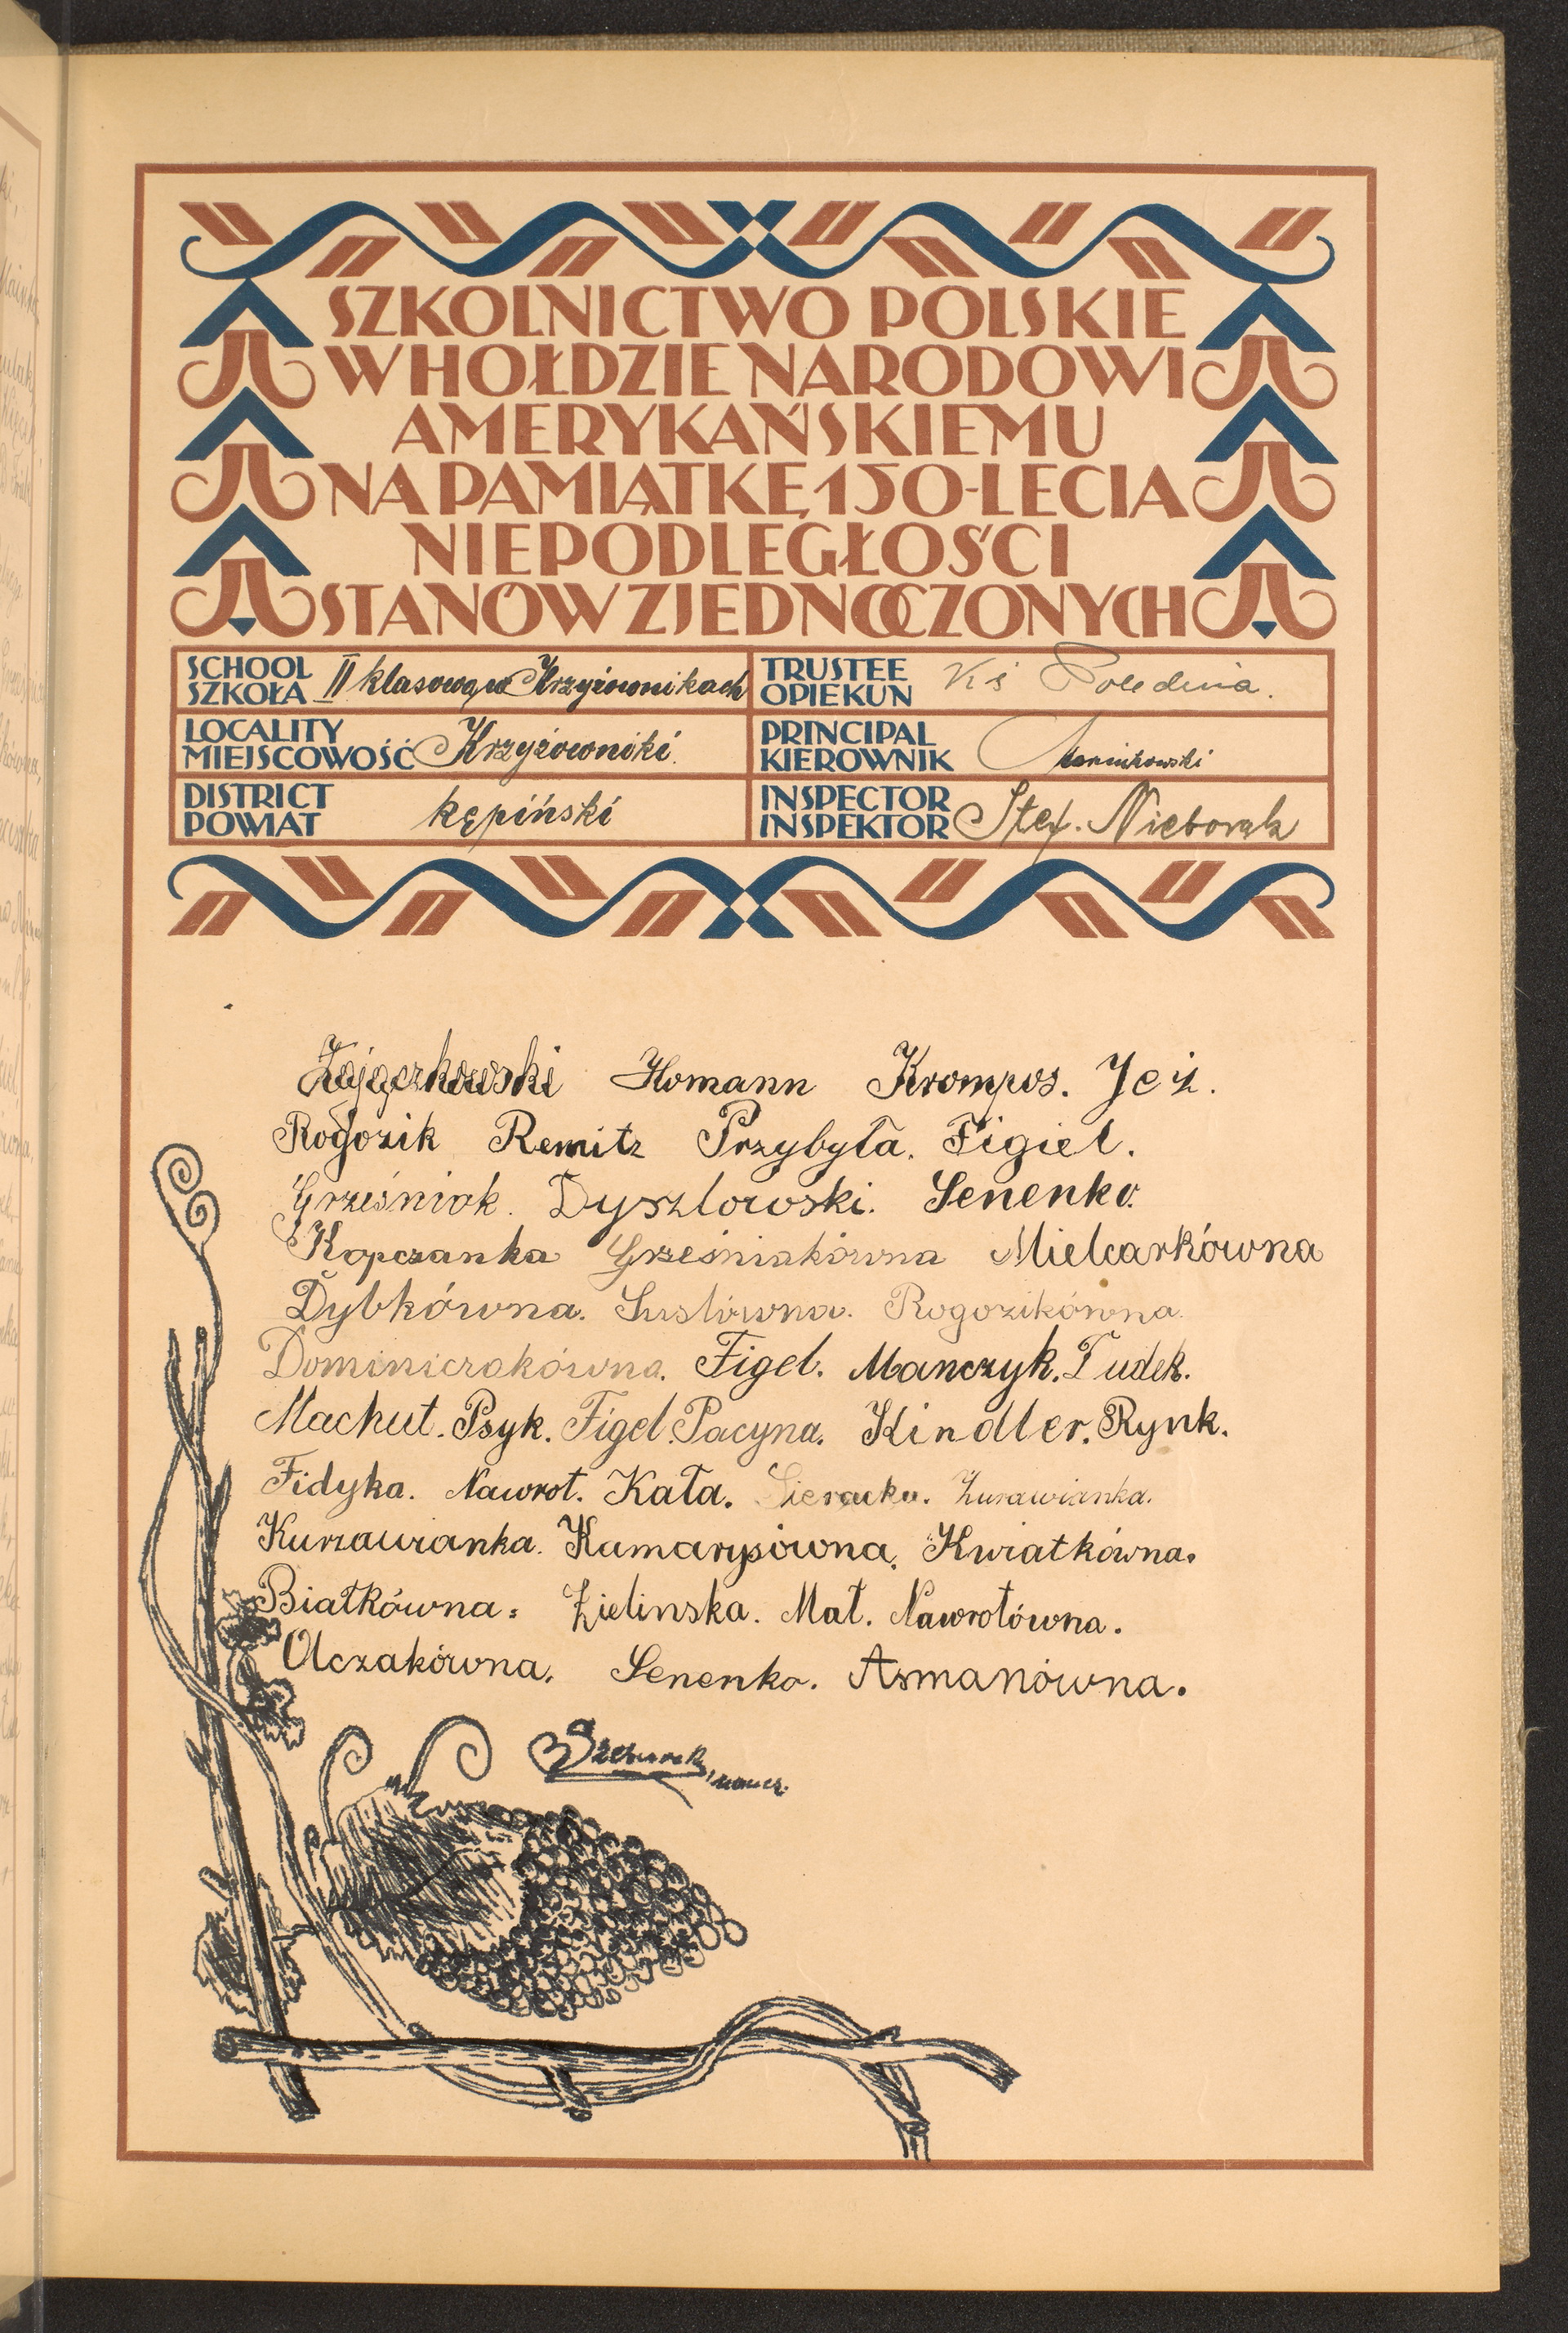 SZKOLNICTWO POLSKIE
W HOŁDZIE NARODOWI
AMERYKAŃSKIEMU
NA PAMIĄTKĘ 150-LECIA
NIEPODLEGŁOŚCI
STANÓW ZJEDNOCZONYCH
SCHOOL
SZKOŁA II klasowa w Krzyżownikach
TRUSTEE
OPIEKUN Ks Polednia.
LOCALITY
MIEJSCOWOŚĆ Krzyżowniki.
PRINCIPAL
KIEROWNIK
DISTRICT
POWIAT kępiński
INSPECTOR
INSPEKTOR Stef. Nieborak
Zajączkowski Homann Krompos. Jeż.
Rogozik Remitz Przybyła. Figiel.
Grześniak. Dyszlowski. Senenko.
Kopczanka Grześniakówna Mielcarkówna
Dybkówna. Suslówna. Rogozikówna.
Dominiczakówna. Figel. Manczyk. Dudek.
Machut. Psyk. Figel. Pacyna. Kindler. Rynk.
Fidyka. Nawrot. Kała. Sieracka. Zurawianka.
Kurzawianka. Kamarysówna. Kwiatkówna.
Białkówna. Zielinska. Mał. Nawrotówna.
Olczakówna. Senenko. Asmanówna.